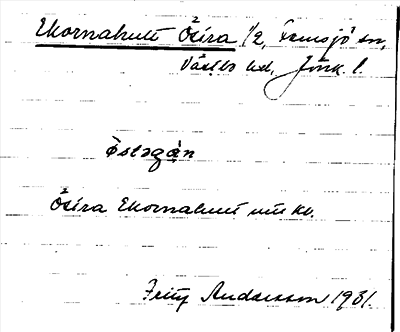 Ekornahult Östra 1/2, Femsjö sn,
Västbo hd, Jönk. l.
östəgȧn
Östra Ekornahult
Fritz Andersson 1931.